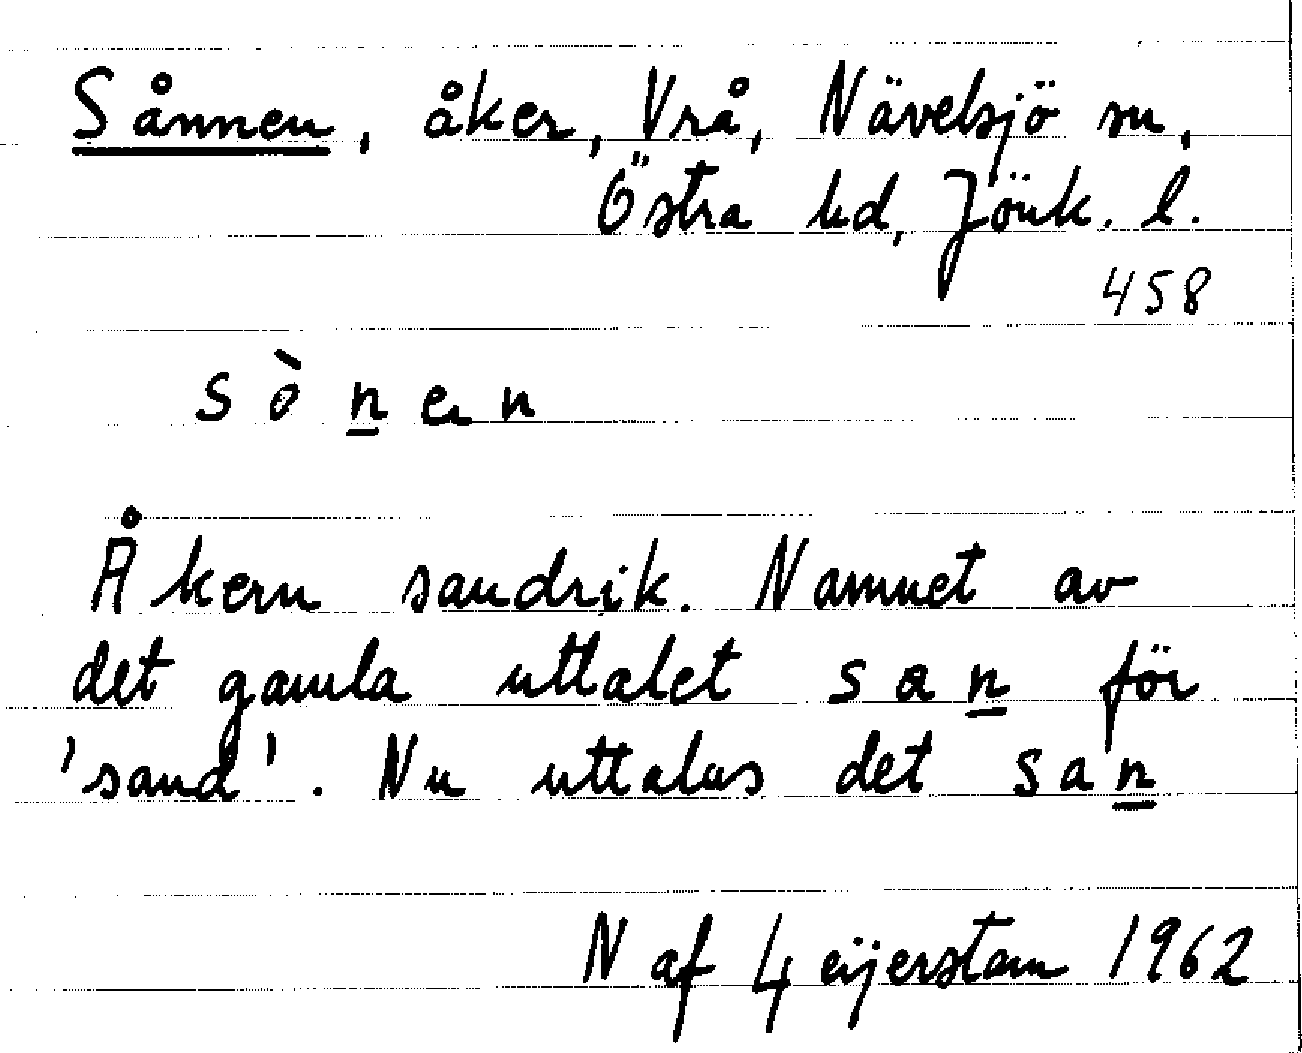 Sånnen, åker, Vrå, Nävelsjö sn,
Östra hd, Jönk. l.
458
s ò n e n
Åkern sandrik. Namnet av
det gamla uttalet s a n för
'sand'. Nu uttalas det s a n
N af Geijerstam 1962